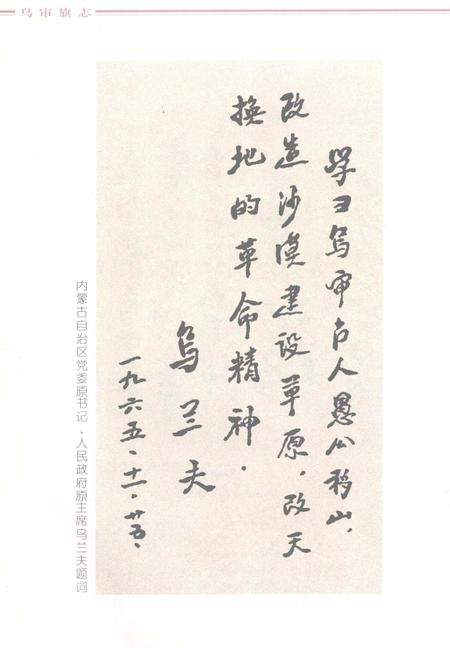 乌审旗志
学习乌审召人愚公移山，
改造沙漠建设草原，改天
换地的革命精神．
乌兰夫
一九六五、十一、廿五、
内蒙古自治区党委原书记、人民政府原主席乌兰夫题词